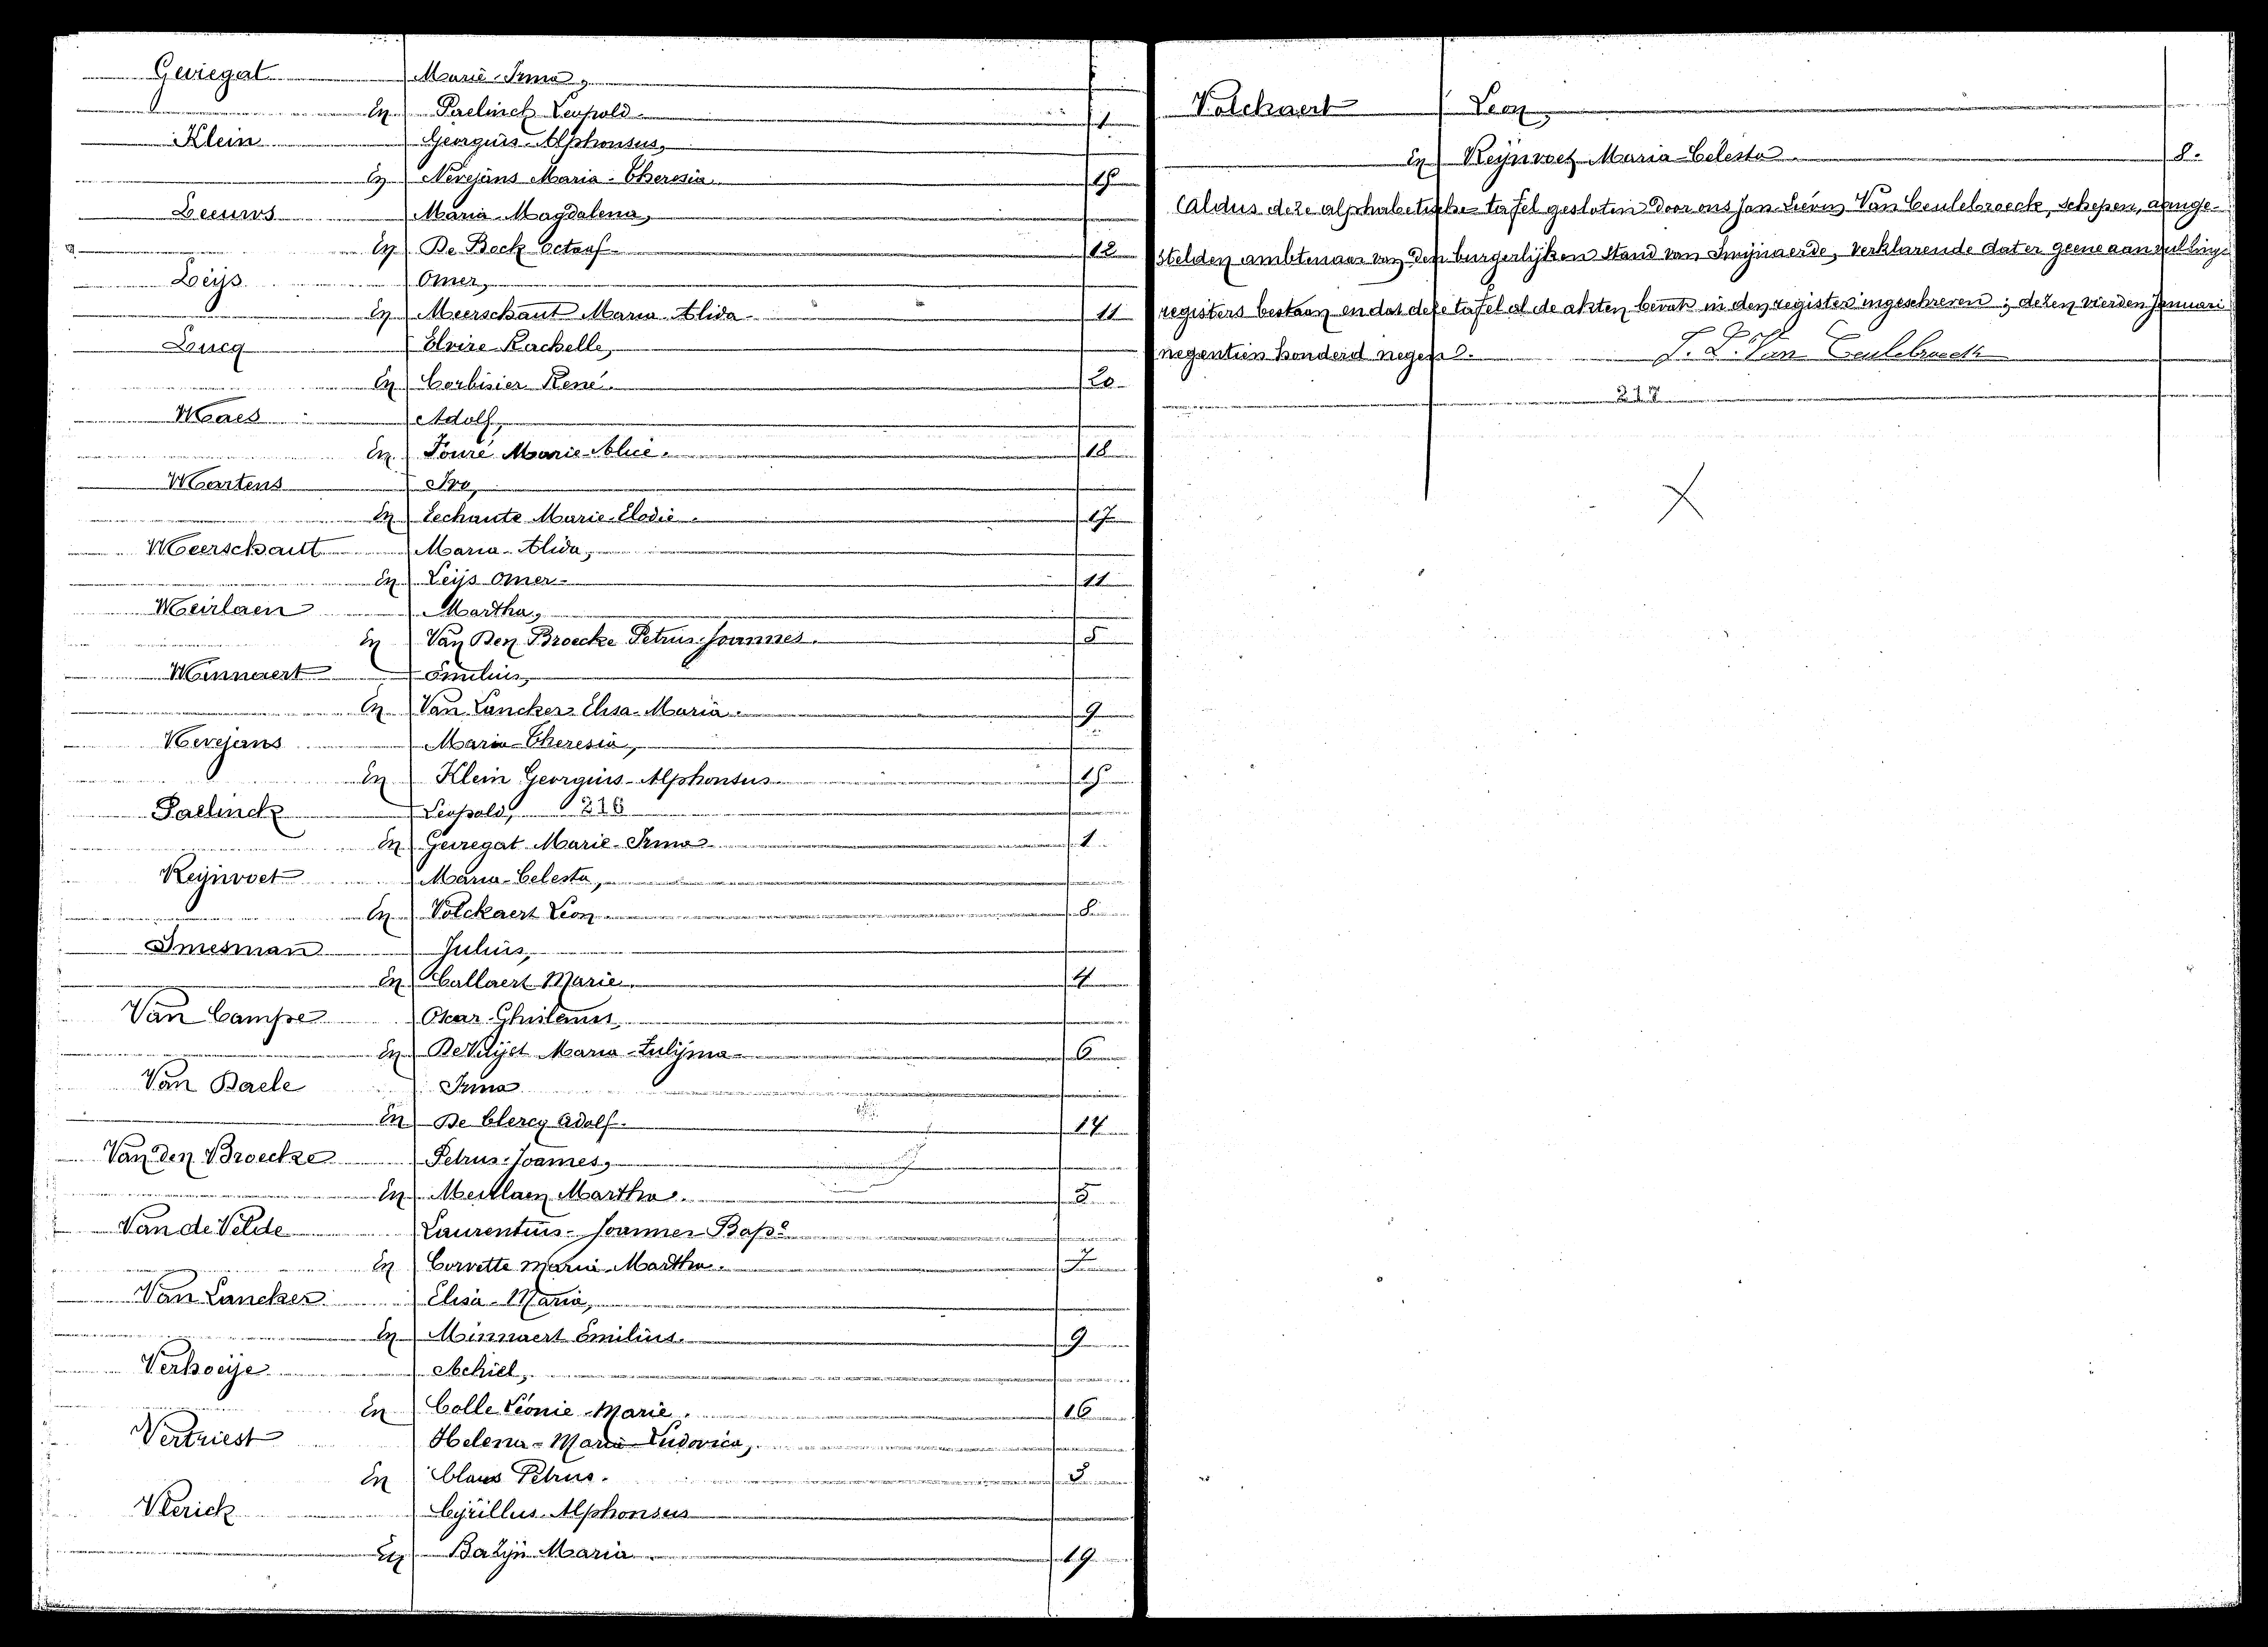 Geiregat Marie-Irma,
En Paelinck Leopold. 1
Klein Georgius-Alphonsus,
En Nevejans Maria-Theresia. 15
Leeuws Maria-Magdalena,
En De Bock Octaaf. 12
Leijs Omer,
En Meerschaut Maria-Alida. 11
Lucq Elvire-Rachelle,
En Corbisier René. 20
Maes Adolf,
En Fouré Marie-Alice. 18
Martens Ivo,
En Lechante Marie-Elodie. 17
Meerschaut Maria-Alida,
En Leijs Omer. 11
Meirlaen Martha,
En Van Den Broecke Petrus-Joannes. 5
Minnaert Emilius,
En Van Lancker Elisa-Maria. 9
Nevejans Maria-Theresia,
En Klein Georgius-Alphonsus 15
Paelinck Leopold, 216
En Geiregat Marie-Irma 1
Reijnvoet Maria-Celesta,
En Volckaert Leon 8
Smesman Julius,
En Callaert Marie 4
Van Campe Oscar-Ghislanus,
En De Vlijst Maria-Zulijma 6
Van Daele Irma
En De Clercq Adolf. 14
Van den Broecke Petrus-Joannes,
En Meirlaen Martha. 5
Van de Velde Laurentius-Joannes Bapt
En Corvette Maria-Martha. 7
Van Lancker Elisa-Maria,
En Minnaert Emilius. 9
Verhoeije Achiel,
En Colle Léonie-Marie. 16
Vertriest Helena-Maria Ludovica,
En Claus Petrus. 3
Vlerick Cÿrillus-Alphonsus
En Bazijn Maria 19
Volckaert Leon,
En Reijnvoet Maria-Celesta. 8.
Aldus deze alphabetische tafel gesloten door ons Jan-Lievin Van Ceulebroeck, schepen, aange-
stelden ambtenaar van den burgerlijken Stand van Swijnaerde, verklarende dat er geene aanvullings
registers bestaan en dat deze tafel al de akten bevat in den register ingeschreven; dezen vierden Januari
negentien honderd negen.
J. L. Van Ceulebroeck
217